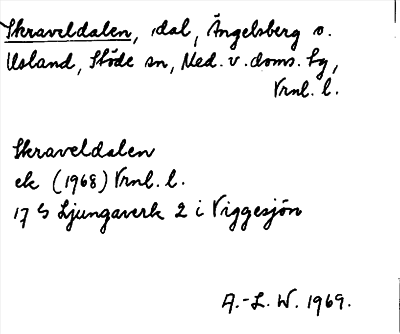 Skraveldalen, dal, Ängelsberg o.
Usland, Stöde sn, Med. v. doms. bg,
Vrnl. l.
Skraveldalen
ek (1968) Vrnl. l.
17 G Ljungaverk 2 i Viggesjön
A.-L. W. 1969.